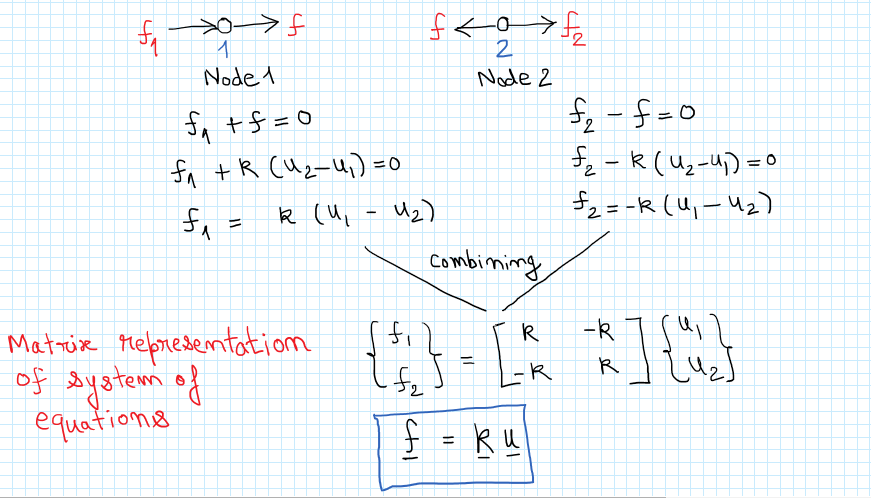 f₁ → 1 → f
f ← 2 → f₂
Node 1
Node 2
f₁ + f = 0
f₂ - f = 0
f₁ + k (u₂-u₁) = 0
f₂ - k (u₂-u₁) = 0
f₁ = k (u₁ - u₂)
f₂ = -k (u₁ - u₂)
combining
Matrix representation
of system of
equations
{f₁ f₂} = [k -k -k k] {u₁ u₂}
f = k u